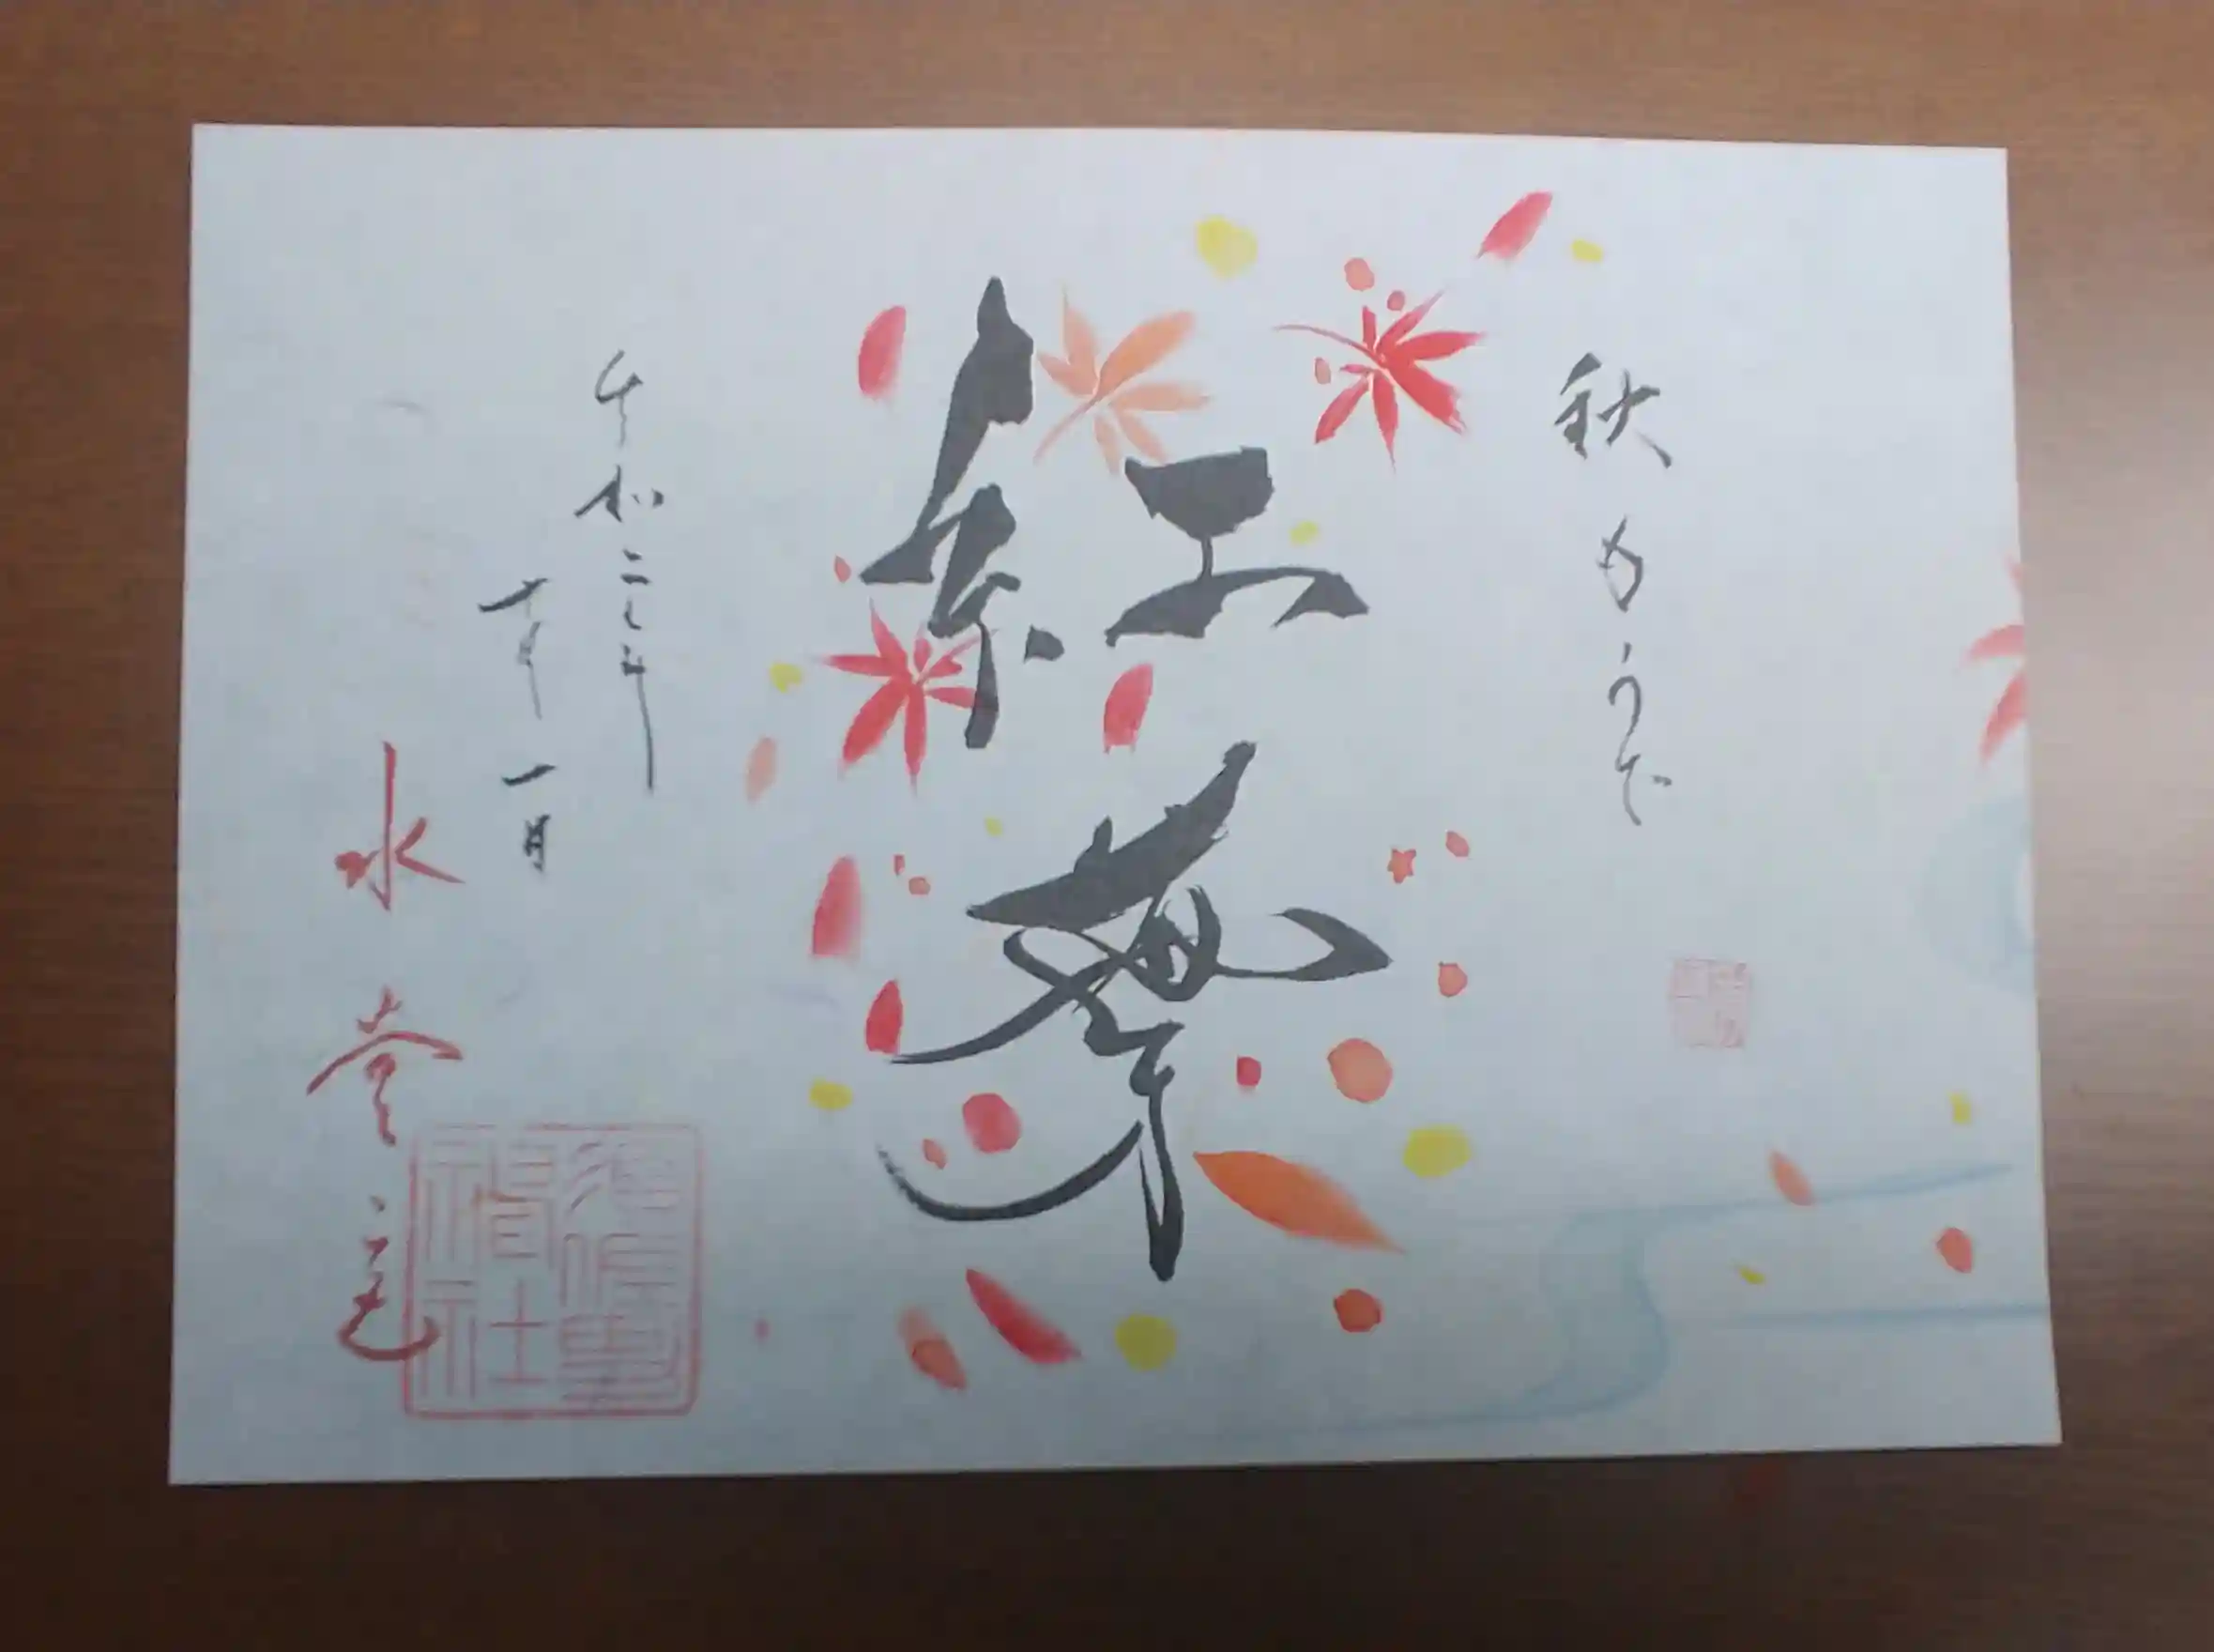 秋もうで
紅葉
令和二年
十一月
水堂